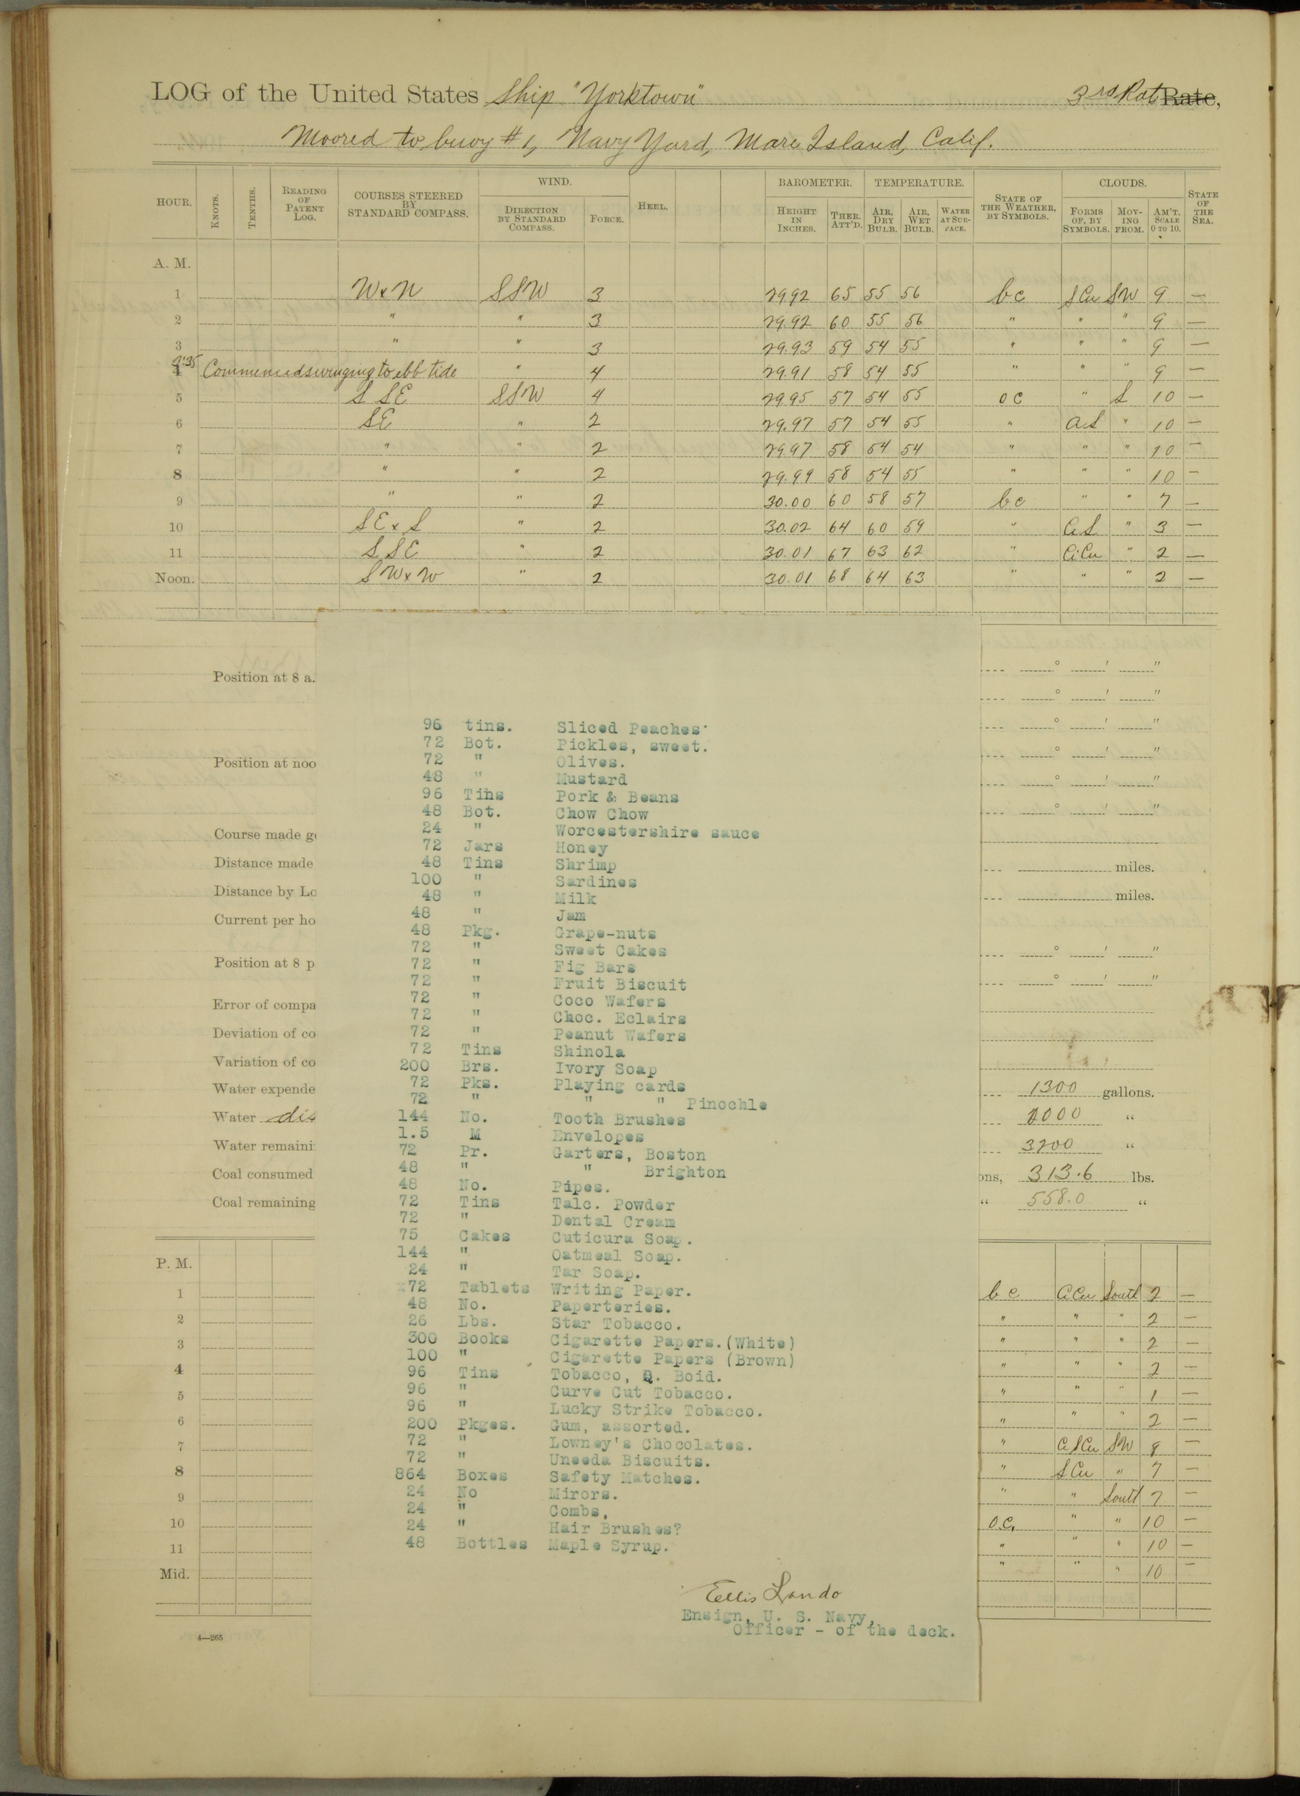 LOG of the United States Ship "Yorktown" 3rd Rate Rate,
Moored to buoy #1, Navy Yard, Mare Island, Calif.
HOUR. KNOTS. TENTHS. READING OF PATENT LOG. COURSES STEERED BY STANDARD COMPASS. WIND. DIRECTION BY STANDARD COMPASS. FORCE. HEEL. BAROMETER. HEIGHT IN INCHES. THER. ATT'D. TEMPERATURE. AIR, DRY BULB. AIR, WET BULB. WATER AT SURFACE. STATE OF THE WEATHER, BY SYMBOLS. CLOUDS. FORMS OF, BY SYMBOLS. MOVING FROM. AM'T, SCALE 0 TO 10. STATE OF THE SEA.
A. M.
1 WxN SSW 3 29.92 65 55 56 bc SCu SW 9 —
2 " " 3 29.92 60 55 56 " " " 9 —
3 " " 3 29.93 59 54 55 " " " 9 —
3:35 4 Commenced swinging to ebb tide " 4 29.91 58 54 55 " " " 9 —
5 SSE SSW 4 29.95 57 54 55 oc " S 10 —
6 SE " 2 29.97 57 54 55 " AS " 10 —
7 " " 2 29.97 58 54 54 " " " 10 —
8 " " 2 29.99 58 54 55 " " " 10 —
9 " " 2 30.00 60 58 57 bc " " 7 —
10 SExS " 2 30.02 64 60 59 " CiS " 3 —
11 SSE " 2 30.01 67 63 62 " CiCu " 2 —
Noon. SWxW " 2 30.01 68 64 63 " " " 2 —
Position at 8 a.
Position at noo
Course made go
Distance made miles.
Distance by Lo miles.
Current per ho
Position at 8 p
Error of compa
Deviation of co
Variation of co
Water expende 1300 gallons.
Water dis 1000 "
Water remaini 3200 "
Coal consumed ons, 313.6 lbs.
Coal remaining " 558.0 "
96 tins. Sliced Peaches
72 Bot. Pickles, sweet.
72 " Olives.
48 " Mustard
96 Tins Pork & Beans
48 Bot. Chow Chow
24 " Worcestershire sauce
72 Jars Honey
48 Tins Shrimp
100 " Sardines
48 " Milk
48 " Jam
48 Pkg. Grape-nuts
72 " Sweet Cakes
72 " Fig Bars
72 " Fruit Biscuit
72 " Coco Wafers
72 " Choc. Eclairs
72 " Peanut Wafers
72 Tins Shinola
200 Brs. Ivory Soap
72 Pks. Playing cards
72 " " " Pinochle
144 No. Tooth Brushes
1.5 M Envelopes
72 Pr. Garters, Boston
48 " " Brighton
48 No. Pipes.
72 Tins Talc. Powder
72 " Dental Cream
75 Cakes Cuticura Soap.
144 " Oatmeal Soap.
24 " Tar Soap.
72 Tablets Writing Paper.
48 No. Paperteries.
26 Lbs. Star Tobacco.
300 Books Cigarette Papers.(White)
100 " Cigarette Papers (Brown)
96 Tins Tobacco, Q. Boid.
96 " Curve Cut Tobacco.
96 " Lucky Strike Tobacco.
200 Pkges. Gum, assorted.
72 " Lowney's Chocolates.
72 " Uneeda Biscuits.
864 Boxes Safety Matches.
24 No Mirors.
24 " Combs,
24 " Hair Brushes?
48 Bottles Maple Syrup.
Ellis Lando
Ensign, U. S. Navy,
Officer - of the deck.
P. M.
1 bc CiCu South 2 —
2 " " " 2 —
3 " " " 2 —
4 " " " 2 —
5 " " " 1 —
6 " " " 2 —
7 " CiSCu SW 8 —
8 " SCu " 7 —
9 " " South 7 —
10 o.c. " " 10 —
11 " " " 10 —
Mid. " " " 10 —
4—265